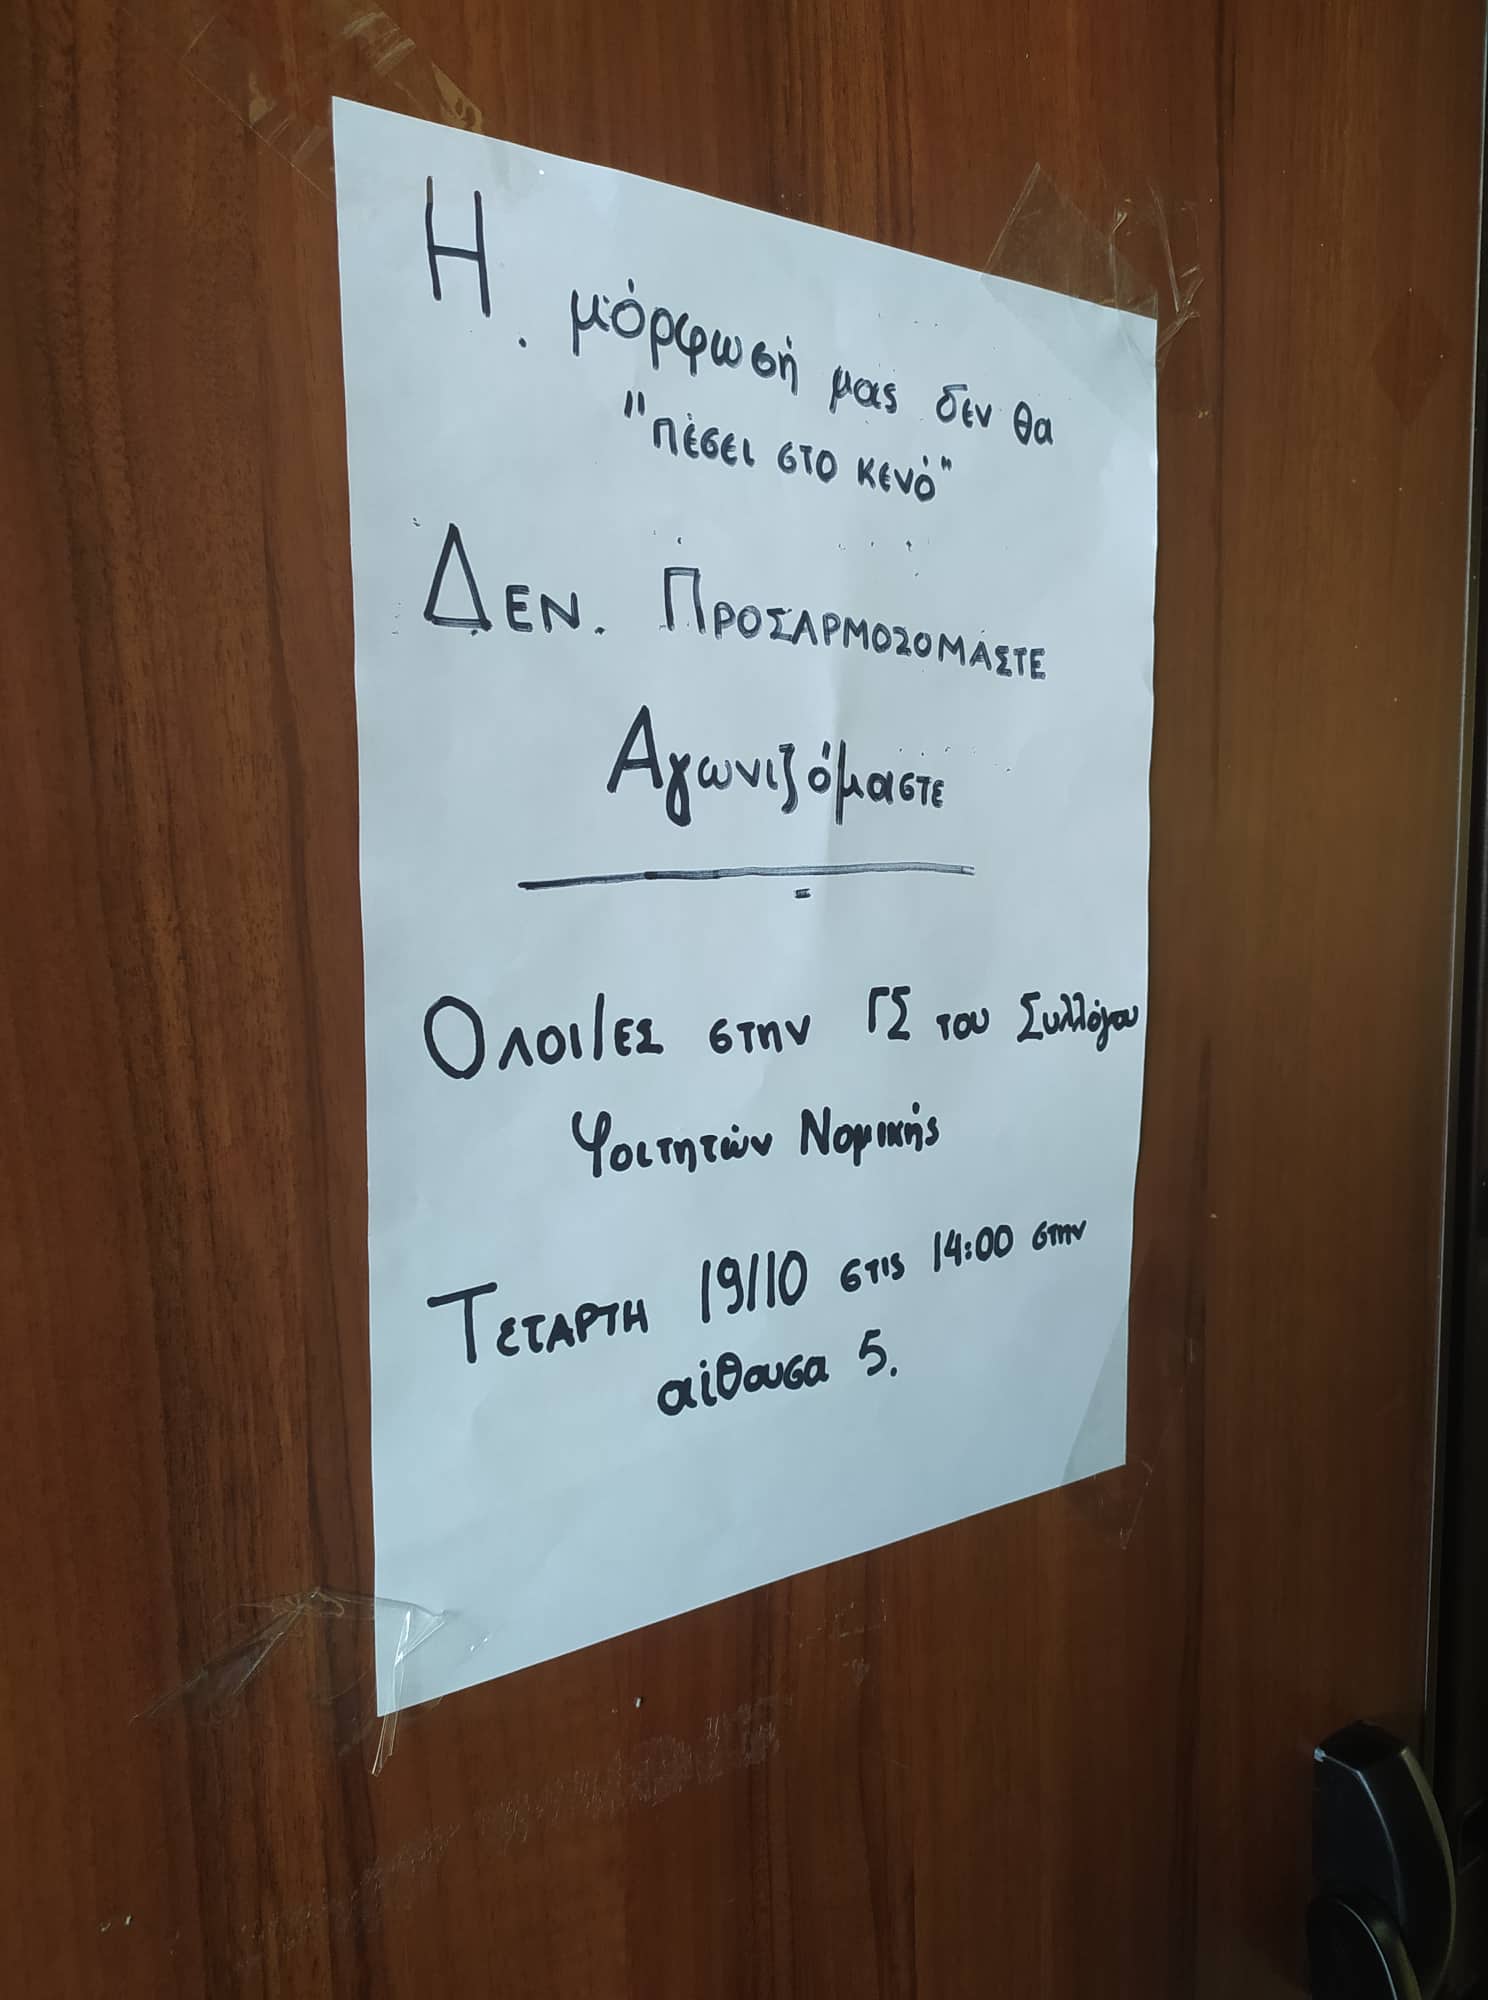 Η μόρφωσή μας δεν θα
"πέσει στο κενό"
ΔΕΝ ΠΡΟΣΑΡΜΟΖΟΜΑΣΤΕ
Αγωνιζόμαστε
Ολοι/ες στην ΓΣ του Συλλόγου
Φοιτητών Νομικής
ΤΕΤΑΡΤΗ 19/10 στις 14:00 στην
αίθουσα 5.